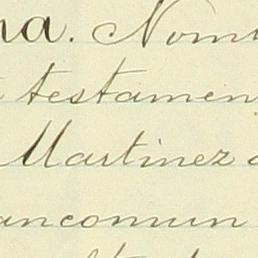 na. Nom
testamen
Martinez
ancomun